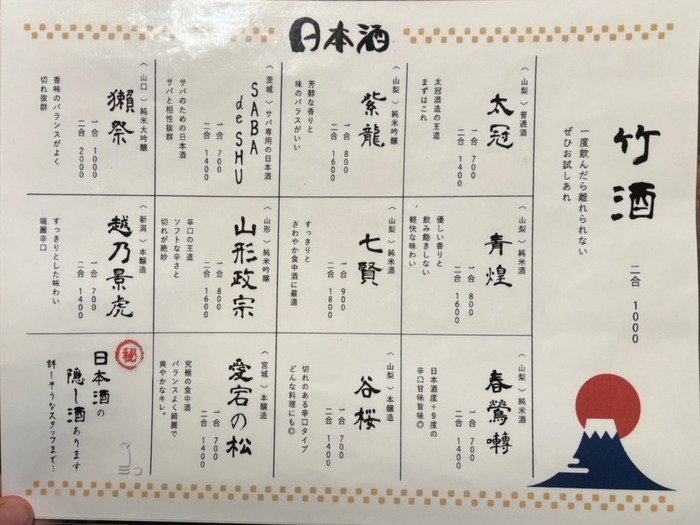 日本酒
竹酒
一度飲んだら離れられない
ぜひお試しあれ
二合 1000
〈山梨〉普通酒
太冠
太冠酒造の王道
まずはこれ
一合 700
二合 1400
〈山梨〉純米吟醸
紫龍
芳醇な香りと
味のバランスがいい
一合 800
二合 1600
〈茨城〉サバ専用の日本酒
SABA
de SHU
サバのための日本酒
サバと相性抜群
一合 700
二合 1400
〈山口〉純米大吟醸
獺祭
香味のバランスがよく
切れ抜群
一合 1000
二合 2000
〈山梨〉純米酒
青煌
優しい香りと
飲み飽きしない
軽快な味わい
一合 800
二合 1600
〈山梨〉純米酒
七賢
すっきりと
さわやか食中酒に最適
一合 900
二合 1800
〈山形〉純米吟醸
山形政宗
辛口の王道
ソフトな辛さと
切れが絶妙
一合 800
二合 1600
〈新潟〉本醸造
越乃景虎
すっきりとした味わい
端麗辛口
一合 700
二合 1400
〈山梨〉純米酒
春鶯囀
日本酒度+9度の
辛口甘味旨味◎
一合 700
二合 1400
〈山梨〉本醸造
谷桜
切れのある辛口タイプ
どんな料理にも◎
一合 700
二合 1400
〈宮城〉本醸造
愛宕の松
究極の食中酒
バランスよく綺麗で
爽やかなキレ。
一合 700
二合 1400
㊙
日本酒の
隠し酒あります
詳しそうなスタッフまで…